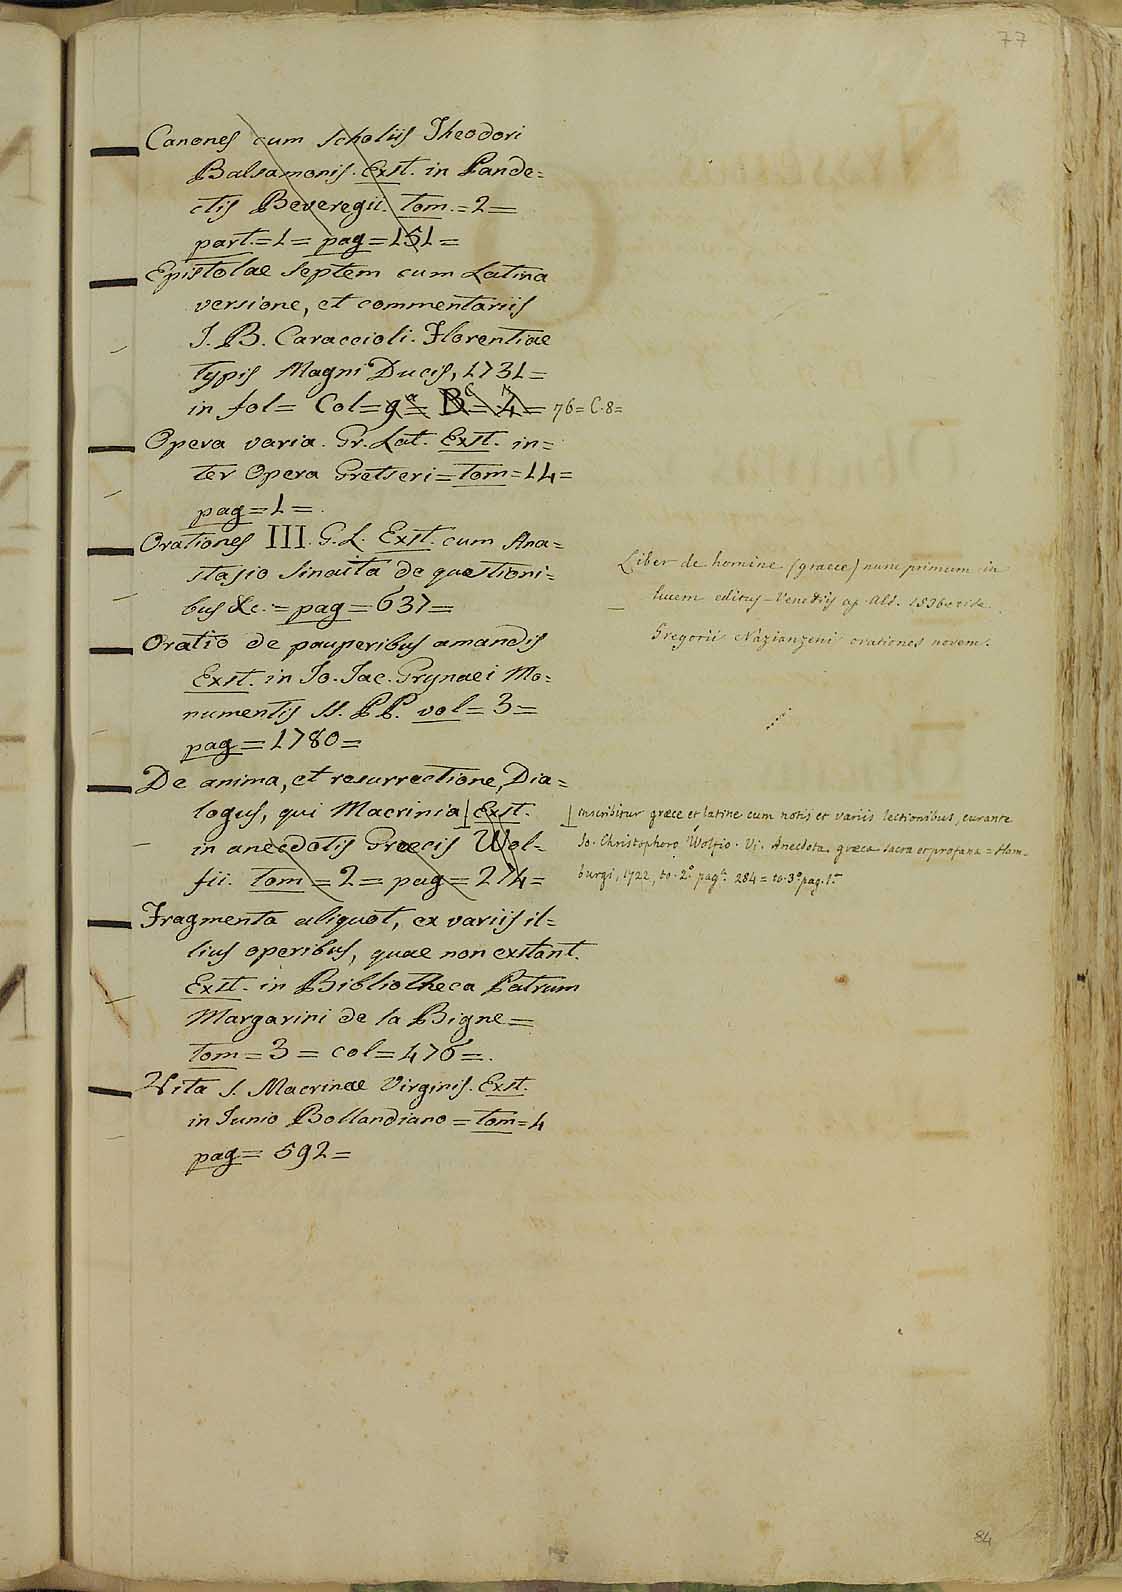 77
Canones cum Scholiis Theodori
Balsamonis. Exst. in Pande=
ctis Beveregii. tom.=2=
part.=1= pag=151=
Epistolae Septem cum Latina
versione, et commentariis
J. B. Caraccioli. Florentiae
Typis Magni Ducis, 1731=
in fol= Col=9ª= B.C=4= 76=C.8=
Opera varia. Gr. Lat. Exst. in=
ter Opera Gretseri=tom=14=
pag=1=.
Orationes III. G. L. Exst. cum Ana=
stasio Sinaita de quaestioni=
bus &c.=pag=637=
Oratio de pauperibus amandis
Exst. in Jo. Jac. Grynaei Mo=
numentis SS. PP. vol=3=
pag=1780=
De anima, et resurrectione, Dia=
logus, qui Macrinia Exst.
in anecdotis Graecis Wol=
fii. tom=2=pag=274=
Fragmenta aliquot, ex variis il=
lius operibus, quae non exstant.
Exst. in Bibliotheca Patrum
Margarini de la Bigne=
tom=3=col=476=.
Vita S. Macrinae Virginis. Exst.
in Junio Bollandiano=tom=4
pag=592=
Liber de homine (graece) nunc primum in
lucem editus=Venetiis ap. Ald. 1536
Gregorii Nazianzeni orationes novem.
inscribitur græce et latine cum notis et variis lectionibus, curante
Jo. Christophoro Wolfio. Vi. Anecdota græca sacra et profana=Ham=
burgi, 1722, to. 2º pagª 284= to. 3º pag. 1ª
84